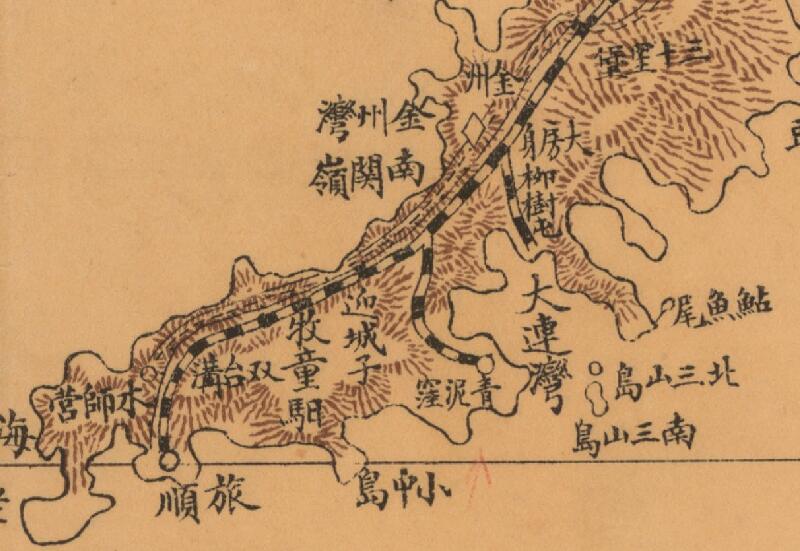 三十里堡
金洲
金州灣
大房身
柳樹屯
南関嶺
大連灣
鮎魚尾
北三山島
南三山島
青泥窪
迎城子
牧童駅
双台溝
水師営
旅順
小中島
海